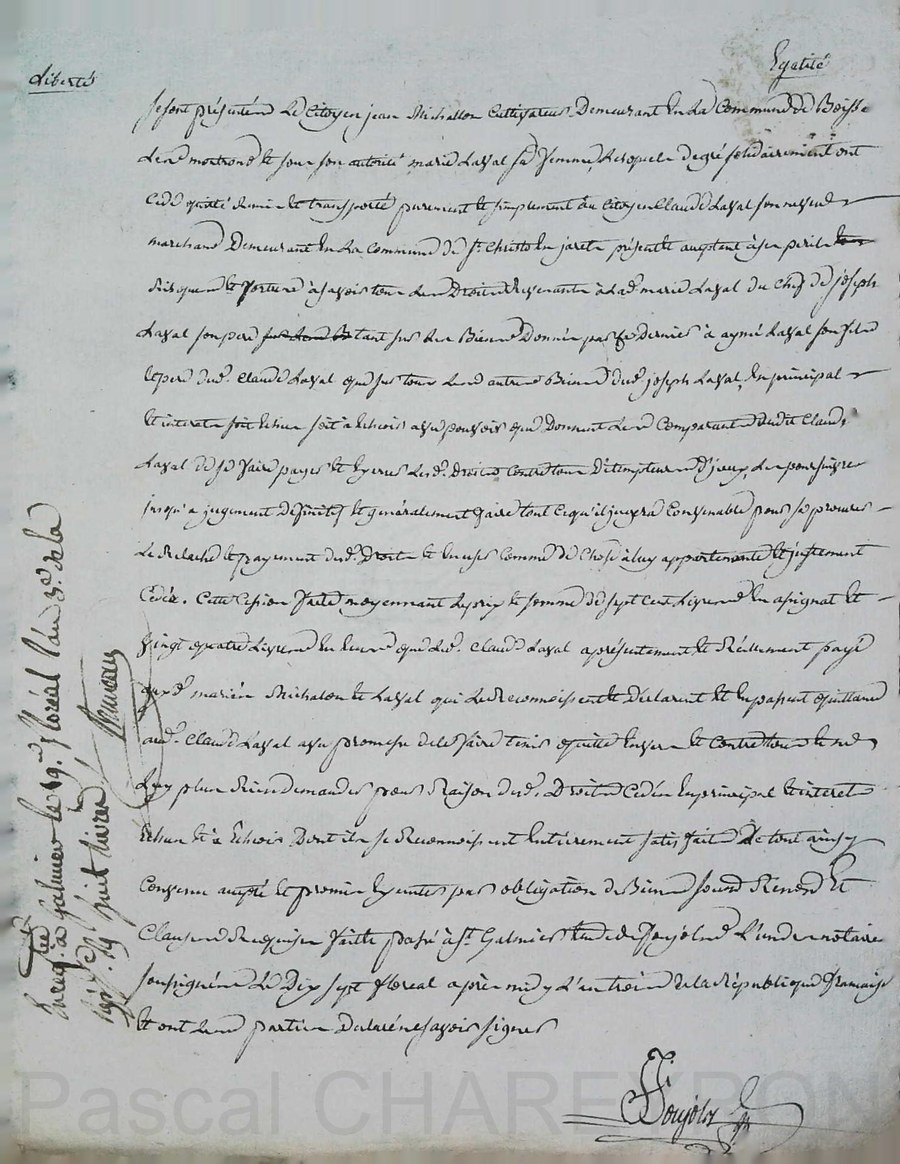 Liberté
Egalité
Se sont présentés Le Citoyen jean Michallon Cultivateur Demeurant En La Commune de Boisse
Les montrond et sous son autorité marie Laval sa femme, Lesquels de gré solidairement ont
Cédé quitté demis et transporté purement et simplement au Citoyen Claude Laval son neveu
marchand Demeurant En La Commune de St. Christo En jaret présent et aceptant à ses perils
risques et fortune à savoir tous Les Droits Revenants à Lad. marie Laval du Chef de joseph
Laval son pere tant sur Les Biens Donnés par Ce Dernier à aymé Laval son fils
et pere dud. Claude Laval que sur tous Les autres Biens dud. joseph Laval, En principal
et interets soit Echus soit à Echeoir avec pouvoir que Donnent Les Comparants Audit Claude
Laval de se faire payer et Exercer Lesd. Droits Contre tous Détempteurs D'iceux, Les poursuivre
jusqu'a jugement Definitif et généralement faire tout Ce qu'il jugera Convenable pour se procurer
Le Relaché et payement desd. Droits et En user Comme de Chose à luy appartenante et justement
Cédée. Cette Cession faite moyennant Le prix et somme de sept Cent Livres En asignat et
vingt quatre Livres que Led. Claude Laval a présentement et Réellement payé
auxd. mariés Michalon et Laval qui Le Reconnoissent et Déclarent Et En passent quittance
aud. Claude Laval avec promesse de le faire tenir quitte Envers et Contre tous et ne
Luy plus Rien demander pour Raison desd. Droits Cédés En principal et interets
Echus et à Echeoir Dont ils se Reconnoissent Entierement satisfaits De tout ainsy
Convenu accepté et promis Executer par obligation de Biens soumis Renoncé Et
Clauses Requises faitte et passé à St. Galmier Etude de Poujols L'un des notaires
soussignés Le Dix sept floreal après midy L'an trois de la République francaise
Et ont Les parties Declaré ne savoir signer
Poujols
Enregtré à Galmier le 19e. floréal l'an 3e. de la
huit livres